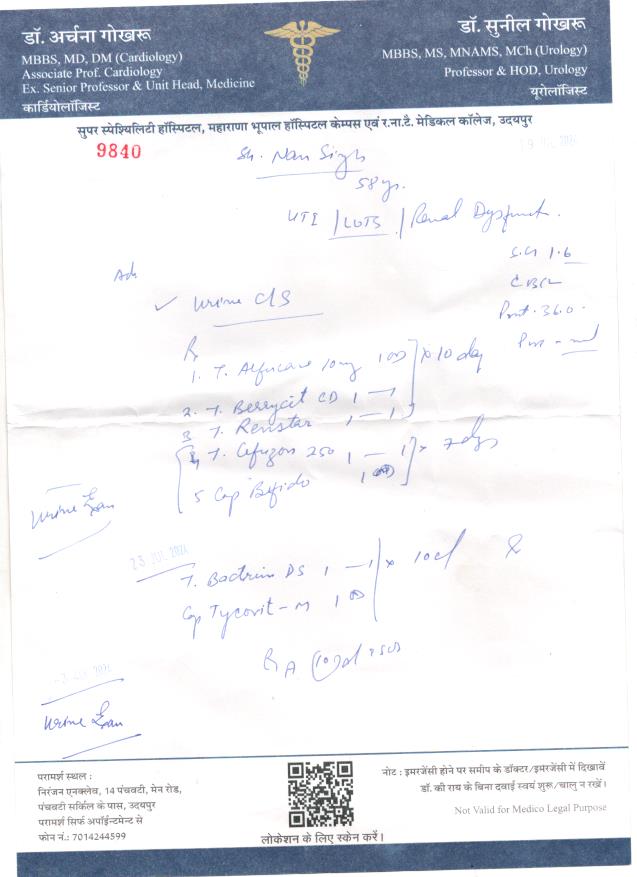 डॉ. अर्चना गोखरू
MBBS, MD, DM (Cardiology)
Associate Prof. Cardiology
Ex. Senior Professor & Unit Head, Medicine
कार्डियोलॉजिस्ट
डॉ. सुनील गोखरू
MBBS, MS, MNAMS, MCh (Urology)
Professor & HOD, Urology
यूरोलॉजिस्ट
सुपर स्पेश्यिलिटी हॉस्पिटल, महाराणा भूपाल हॉस्पिटल केम्पस एवं र.ना.टै. मेडिकल कॉलेज, उदयपुर
9840
Sh. Nan Singh
58 yrs.
UTI / LUTS / Renal Dysfunct.
1.6
Adv
✓ Urine C/S
36.0
Rx
1. T. 10mg 1 OD x 10 day
2. T. Berrycit CD 1 — 1
3 T. Renstar 1 — 1
4 T. 250 1 — 1 x 7 dys
5 Cap Bifido 1 OD
Urine Exam
23 JUL 2024
T. Bactrim DS 1 — 1 x 10d
Cap Tycovit-M 1 OD
Urine Exam
परामर्श स्थल :
निरंजन एनक्लेव, 14 पंचवटी, मेन रोड,
पंचवटी सर्किल के पास, उदयपुर
परामर्श सिर्फ अपॉईन्टमेन्ट से
फोन नं.: 7014244599
लोकेशन के लिए स्केन करें।
नोट : इमरजेंसी होने पर समीप के डॉक्टर/इमरजेंसी में दिखावें
डॉ. की राय के बिना दवाई स्वयं शुरू/चालु न रखें।
Not Valid for Medico Legal Purpose